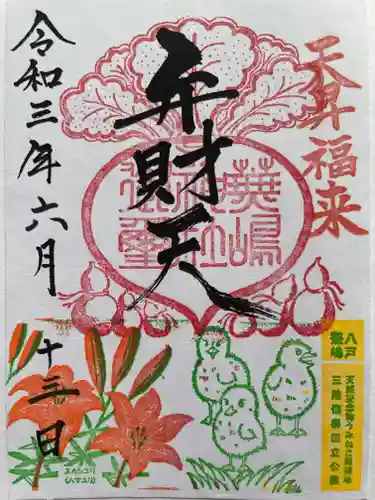 天昇福来
弁財天
令和三年六月
十三日
蕪嶋
神社
八戸
蕪嶋
天然記念物うみねこ繁殖地
三陸復興国立公園
スカシユリ
(ハマユリ)